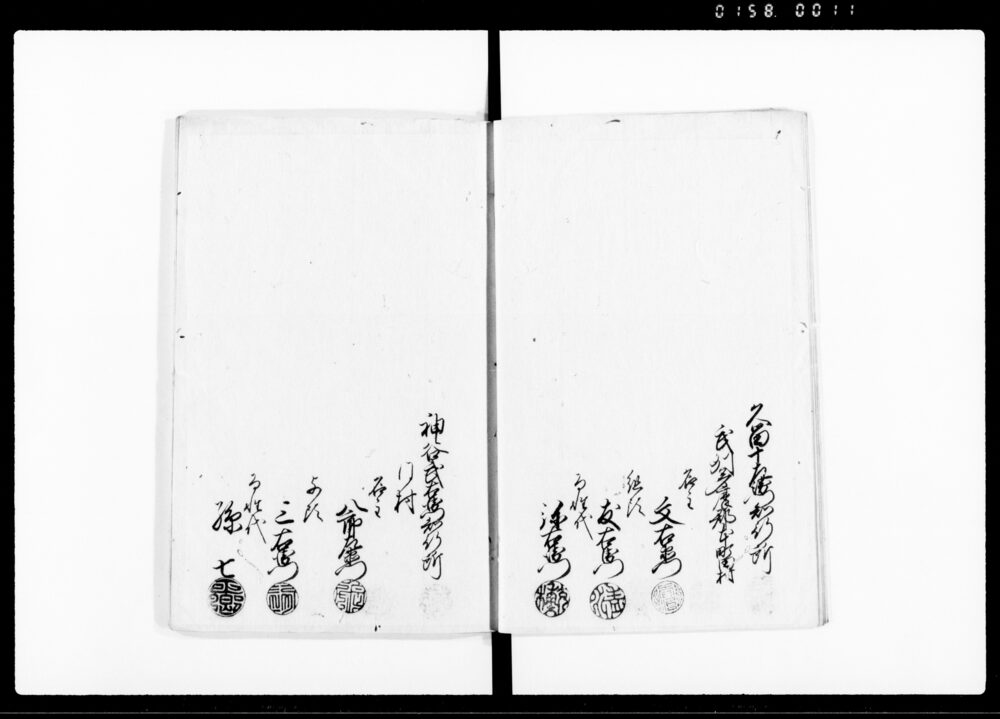 0158.0011
久留十左衛門知行所
武州多摩郡本町田村
名主
文右衛門
組頭
友右衛門
百姓代
清右衛門
神谷武右衛門知行所
同村
名主
八郎左衛門
与頭
三右衛門
百姓代
孫七